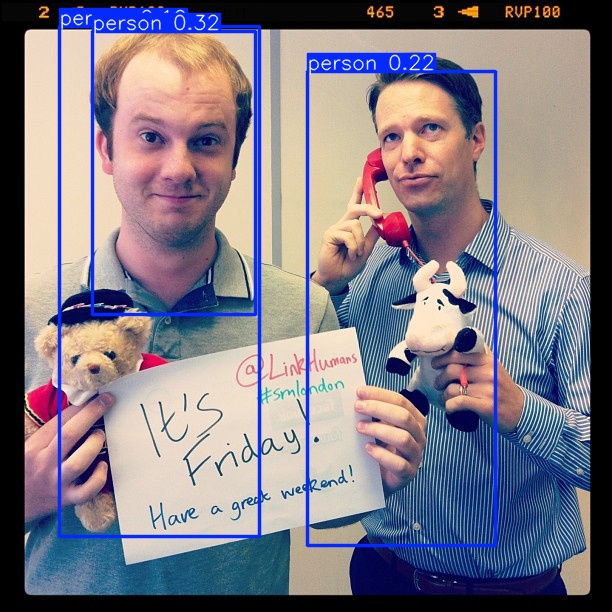 2 465 3 RVP100
person 0.32
person 0.22
@LinkHumans
#smlondon
It's
Friday!
Have a great weekend!